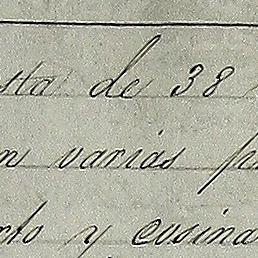 sta de 38
n varias p
rto y cosina